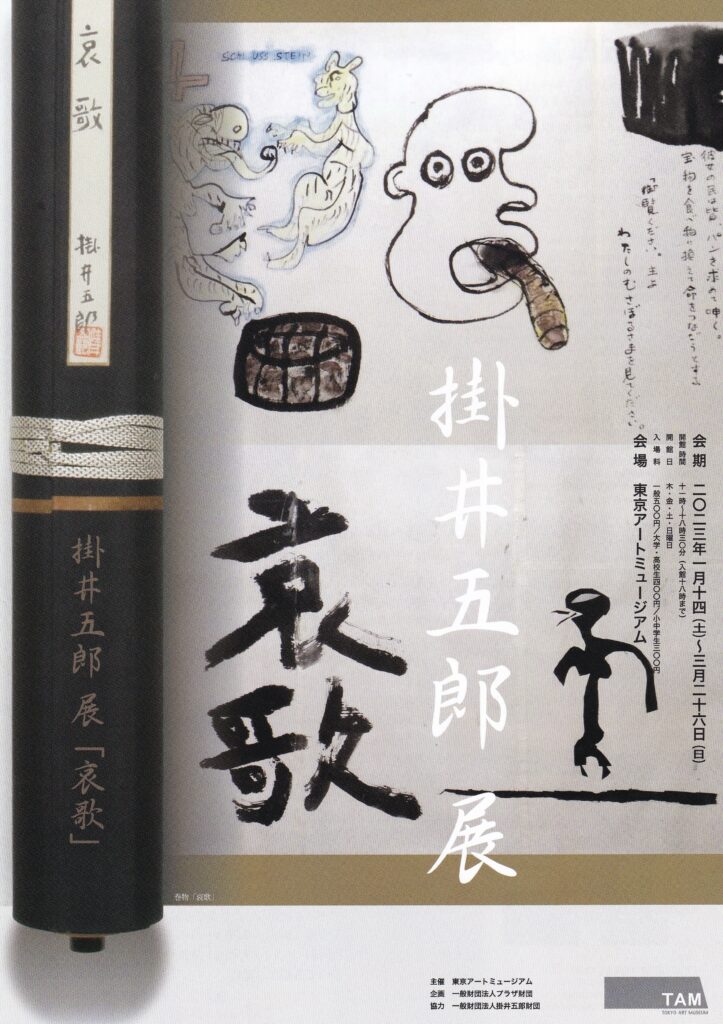 哀歌
掛井五郎
掛井五郎 展「哀歌」
SCHLUSS STEIN
彼女の民は皆、パンを求めて呻く。
宝物を食べ物に換えて命をつなごうとする
「御覧ください、主よ
わたしのむさぼるさまを見てください。
掛井五郎 展
哀歌
会期 二〇二三年一月十四(土)〜三月二十六日(日)
開館時間 十一時〜十八時三〇分(入館十八時まで)
開館日 木・金・土・日曜日
入場料 一般五〇〇円/大学・高校生四〇〇円/小中学生三〇〇円
会場 東京アートミュージアム
巻物「哀歌」
主催 東京アートミュージアム
企画 一般財団法人プラザ財団
協力 一般財団法人掛井五郎財団
TAM
TOKYO ART MUSEUM